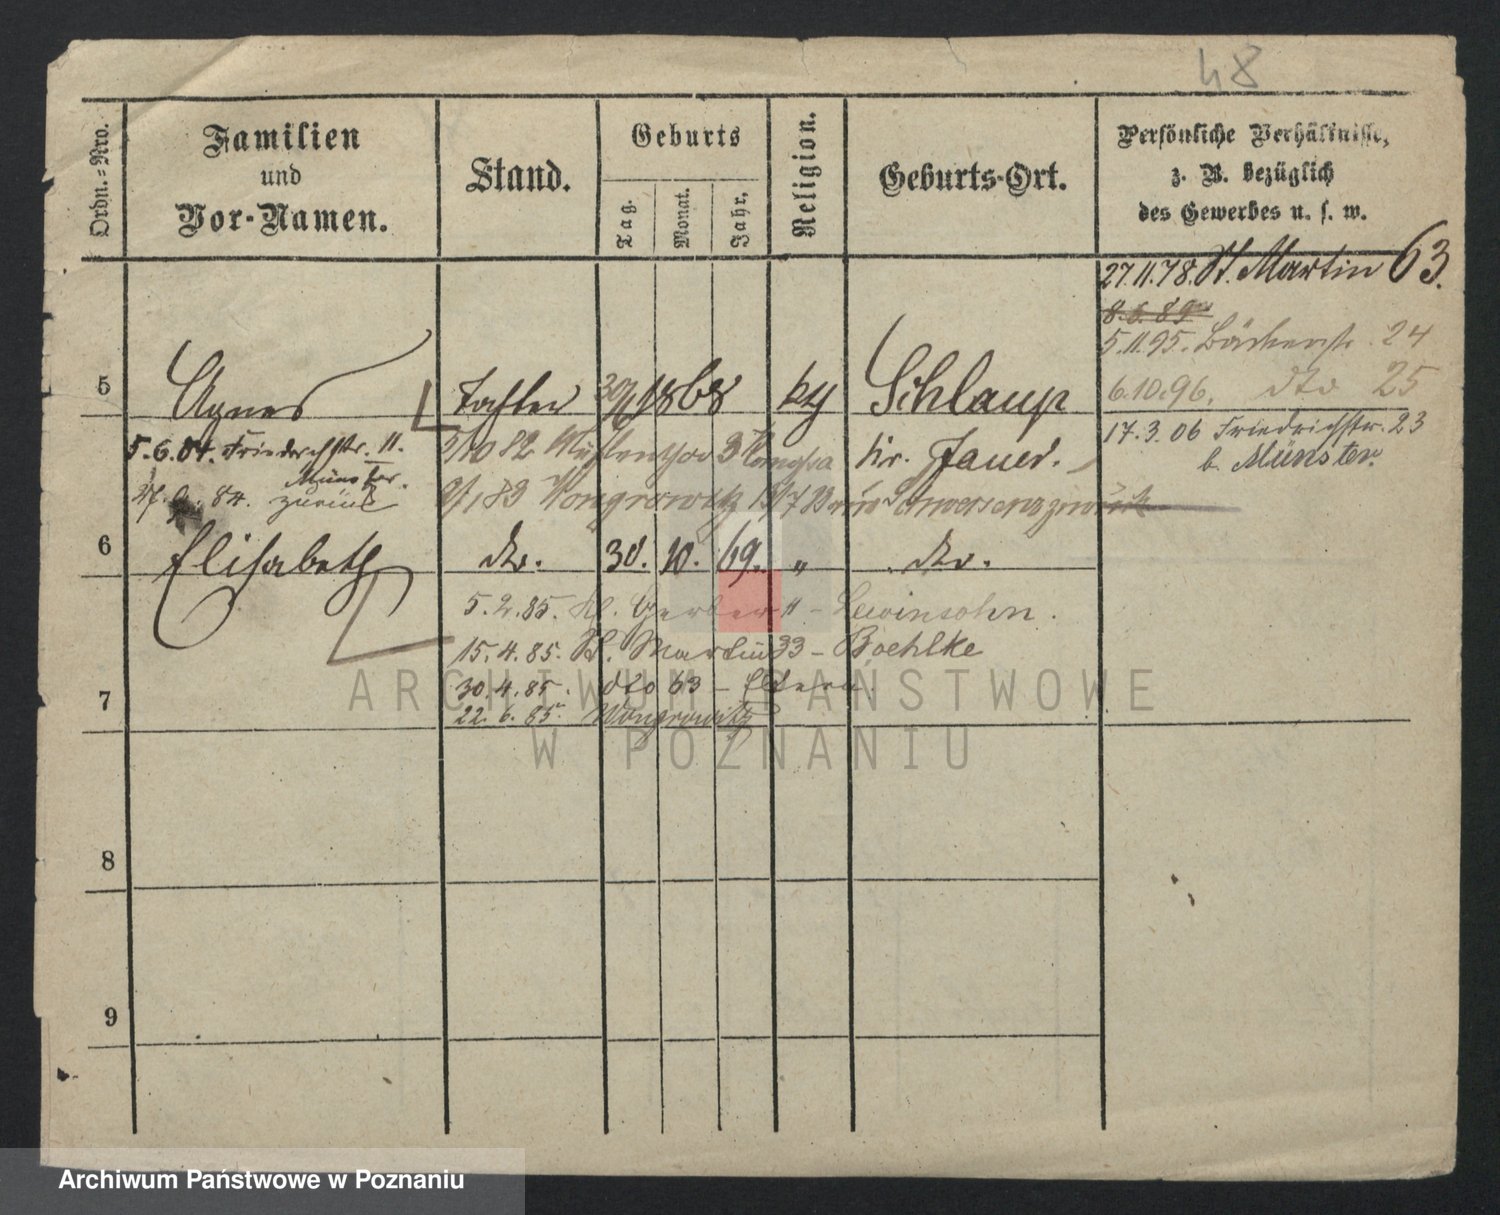 48
Ordn.-Nro.
Familien
und
Vor-Namen.
Stand.
Geburts
Tag.
Monat.
Jahr.
Religion.
Geburts-Ort.
Persönliche Verhältnisse,
z. B. bezüglich
des Gewerbes u. s. w.
27.11.78. St. Martin 63.
8.6.89
5.11.95. Bäckerstr. 24
6.10.96. dto 25
17.3.06 Friedrichstr. 23
b. Münster.
5
Agnes
Tochter
1868
Schlaup
5.6.84. Friedrichstr. 11.
Münster.
84. zurück
82 Mühlenthor
Kr. Jauer.
83 Wongrowitz
6
Elisabeth
do.
30. 10. 69. "
do.
5.2.85. Gerber 11 - Lewinsohn.
15.4.85. St. Martin 33 - Boehlke
7
30.4.85. dto 63 - Eltern.
22.6.85. Wongrowitz
8
9
ARCHIWUM PAŃSTWOWE
W POZNANIU
Archiwum Państwowe w Poznaniu